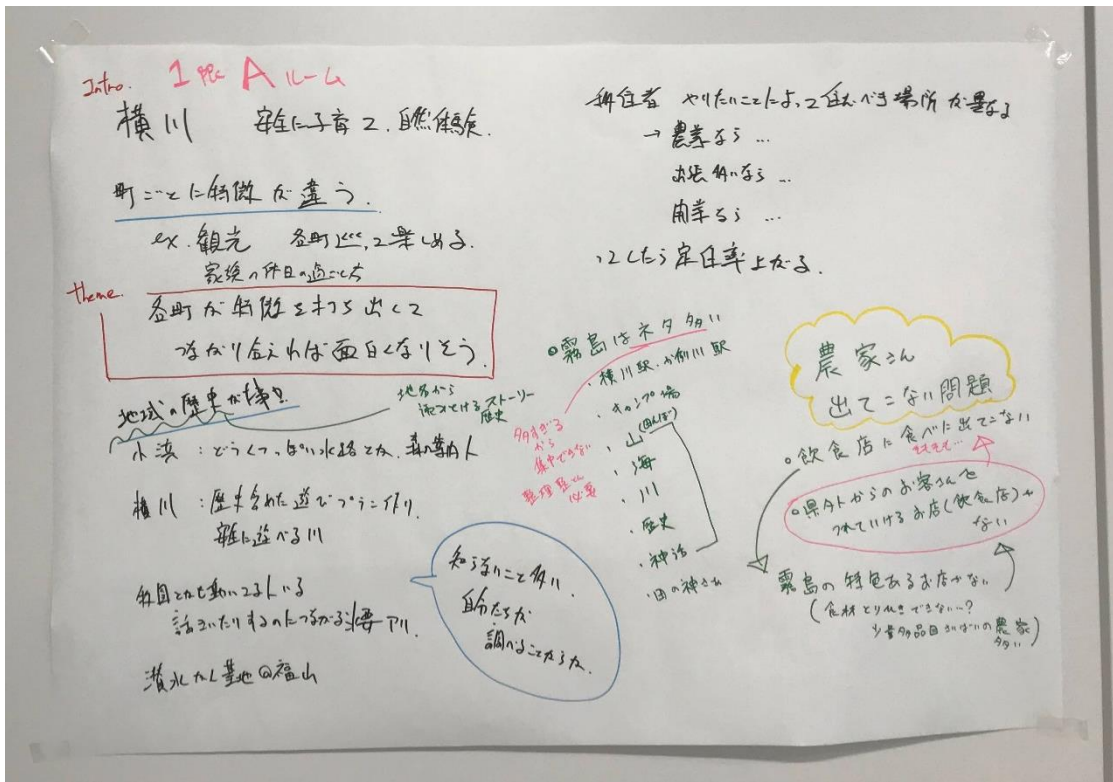 Intro. 1階 Aルーム
横川 安全に子育て、自然体験.
町ごとに特徴が違う.
ex. 観光 各町巡って楽しめる.
家族の休日の過ごし方
theme.
各町が特徴を打ち出して
つながり合えれば面白くなりそう.
地域の歴史が大事!?
地名から
ストーリー
歴史
小浜:どうくつっぽい水路とか、森の案内人
横川:歴史含めた遊びプラン作り.
安全に遊べる川
動いてる人いる
話きいたりするのにつながる必要アリ.
潜水かん基地@福山
知らないこと多い.
自分たちが
調べることからか.
移住者 やりたいことによって住むべき場所が異なる
→農業なら…
出張多いなら…
開業なら…
ってしたら定住率上がる.
霧島はネタ多い
・横川駅・か例川駅
・キャンプ場
・山(田んぼ)
・海
・川
・歴史
・神話
・田の神さぁ
多すぎる
から
集中できない
整理整とん
必要
農家さん
出てこない問題
飲食店に食べに出てこない
そもそも…
県外からのお客さんを
つれていけるお店(飲食店)が
ない
霧島の特色あるお店がない
(食材とりひきできない…?
少量多品目さいばいの農家
多い)